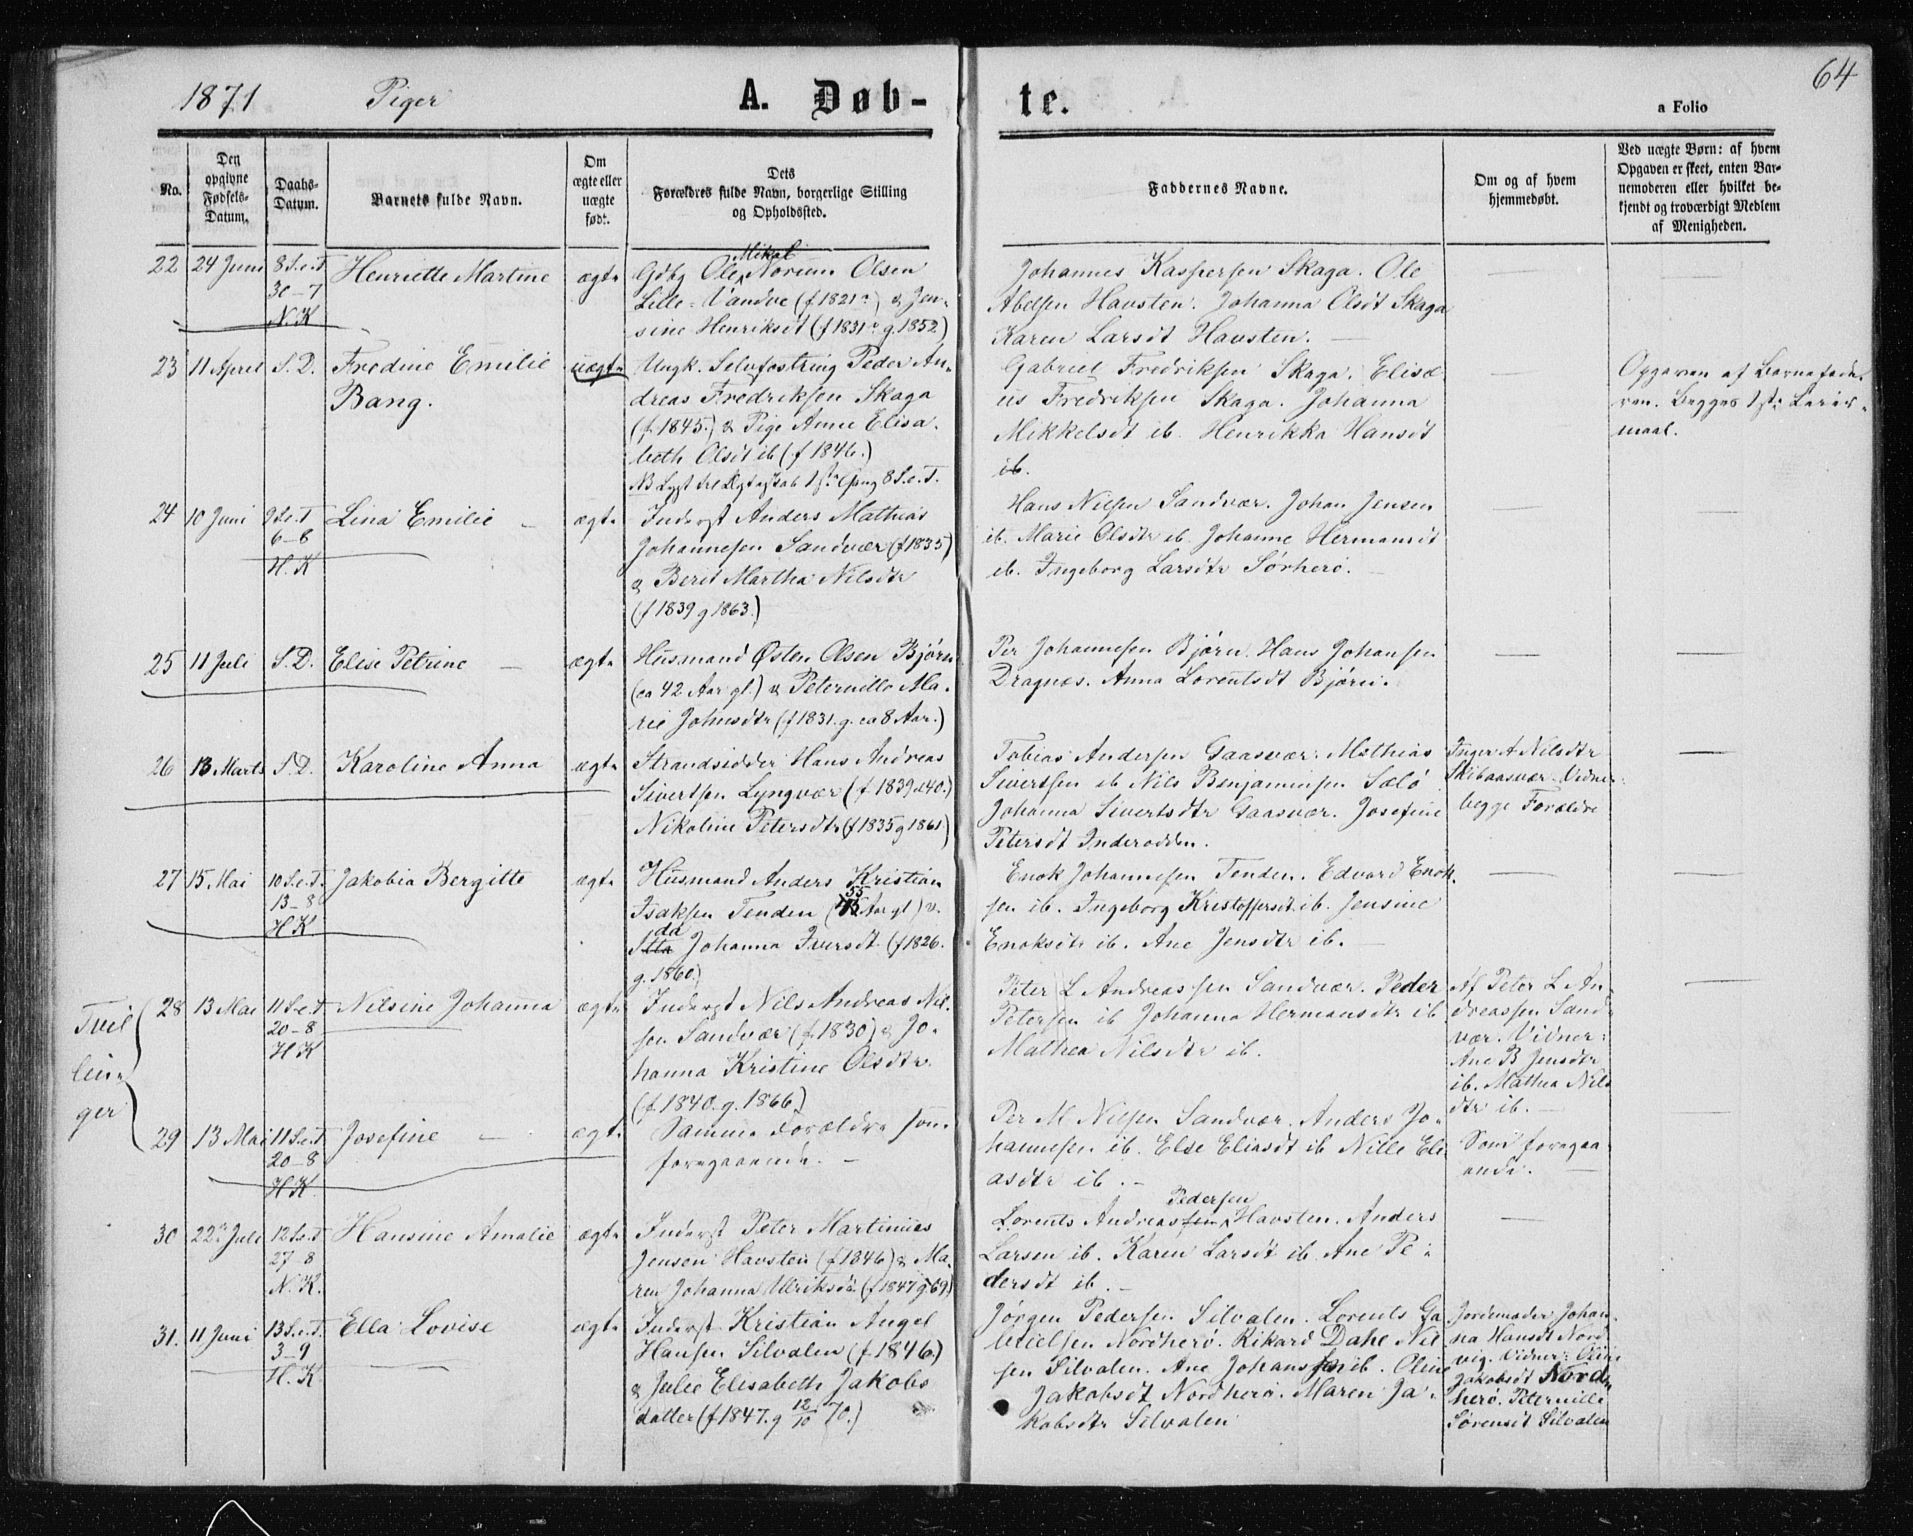 1871 Piger A. Døb- te. 64
a Folio
No.
Den opgivne Fødsels-Datum.
Daabs-Datum.
Barnets fulde Navn.
Om ægte eller uægte født.
Dets Forældres fulde Navn, borgerlige Stilling og Opholdssted.
Faddernes Navne.
Om og af hvem hjemmedøbt.
Ved uægte Børn: af hvem Opgaven er skeet, enten Barnemoderen eller hvilket bekjendt og troværdigt Medlem af Menigheden.
22 24 Juni 8 S.e.T.
30-7
N.K
Henriette Martine
ægte
Mikal
Gdbg Ole Norum Olsen
Lille-Vandve (f 1821) & Jen-
sine Henriksdt (f 1831 g. 1852)
Johannes Kaspersen Skaga. Ole
Abelsen Havsten. Johanna Olsdt Skaga
Karen Larsdt Havsten.
23 11 April S.D.
Fredine Emilie
Bang.
uægte
Ungk. Selvfostring Peder An-
dreas Fredriksen Skaga
(f 1845.) & Pige Anne Elisa-
beth Olsdt ib (f 1846.)
NB Lyst til Ægteskab 1ste Gang 8 S.e.T.
Gabriel Fredriksen Skaga. Elisæ
us Fredriksen Skaga. Johanna
Mikkelsdt ib. Henrikka Hansdt
ib.
Opgaven af Barnefade-
ren. Begges 1ste Leier-
maal.
24 10 Juni 9 S.e.T
6-8
H.K
Lina Emilie
ægte
Inderst Anders Mathias
Johannesen Sandvær (f 1835)
& Berit Martha Nilsdtr
(f 1839 g 1863.)
Hans Nilsen Sandvær. Johan Jensen
ib. Marie Olsdtr ib. Johanne Hermansdt
ib. Ingeborg Larsdtr Sørherø.
25 11 Juli S.D. Elise Petrine
ægte
Husmand Østen Olsen Bjørn
(ca 42 Aar gl.) & Peternille Ma-
rie Johnsdtr (f 1831. g. ca 8 Aar.)
Per Johannesen Bjørn. Hans Johansen
Dragnæs. Anna Lorentsdt Bjørn.
26 13 Marts S.D. Karoline Anna
ægte
Strandsidder Hans Andreas
Sivertsen Lyngvær (f 1839 & 40.)
Nikoline Petersdtr (f 1835 g 1861)
Tobias Andersen Gaasvær. Mathias
Sivertsen ib Nils Benjaminsen Sælø
Johanna Sivertsdtr Gaasvær. Josefine
Petersdt Inderodden.
Inger A Nilsdtr
Skibaasvær. Vidne:
begge Forældre
27 15 Mai 10 S.e.T.
13-8
H K
Jakobia Bergitte
ægte
Husmand Anders Kristian
55
Isaksen Tenden (Aar gl) &
da
Johanna Iversdt (f 1826.
g. 1860)
Enok Johannesen Tenden. Edvard Enok-
sen ib. Ingeborg Kristoffersdt ib. Jensine
Enoksdtr ib. Ane Jensdtr ib.
Tvil
lin
ger
28 13 Mai 11 S.e.T
20-8
H K
Nilsine Johanna
ægte
Inderst Nils Andreas Nil-
sen Sandvær (f. 1830) & Jo-
hanna Kristine Olsdtr
(f. 1840. g. 1866)
Peter L Andreassen Sandvær. Peder
Petersen ib Johanna Hermansdtr ib
Mathea Nilsdtr ib.
Af Peter L An-
dreassen Sand-
vær. Vidner:
Ane B Jensdtr
ib. Mathea Nils
dtr ib.
29 13 Mai 11 S.e.T
20-8
H K.
Josefine
ægte
Samme Forældre som
foregaaende.
Per M Nilsen Sandvær. Anders Jo-
hannesen ib. Else Eliasdt ib Nille Eli
asdtr ib.
Som foregaa-
ende.
30 22 Juli 12 S.e.T
27-8
N.K.
Hansine Amalie
ægte
Inderst Peter Martinus
Jensen Havsten (f 1846) & Ma-
ren Johanna Ulriksdt (f 1847 g 69)
Pedersen
Lorents Andreas Havsten. Anders
Larsen ib. Karen Larsdt ib. Ane Pe-
dersdt ib.
31. 11 Juni 13 S.e.T.
3-9
H.K
Ella Lovise
ægte
Inderst Kristian Angel
Hansen Silvalen (f 1846.)
& Julie Elisabeth Jakobs
datter (f 1847. g 12/10 70.)
Jørgen Pedersen Silvalen. Lorents Ga
brielsen Nordherø. Rikard Dahl Nil
sen Silvalen. Ane Johans ib. Oline
Jakobsdt Nordherø. Maren Ja-
kobsdtr Silvalen
Jordemoder Johan-
na Hansdt Nord
vig. Vidner: Oline
Jakobsdt Nord
herø. Peternille
Sørensdt Silvalen